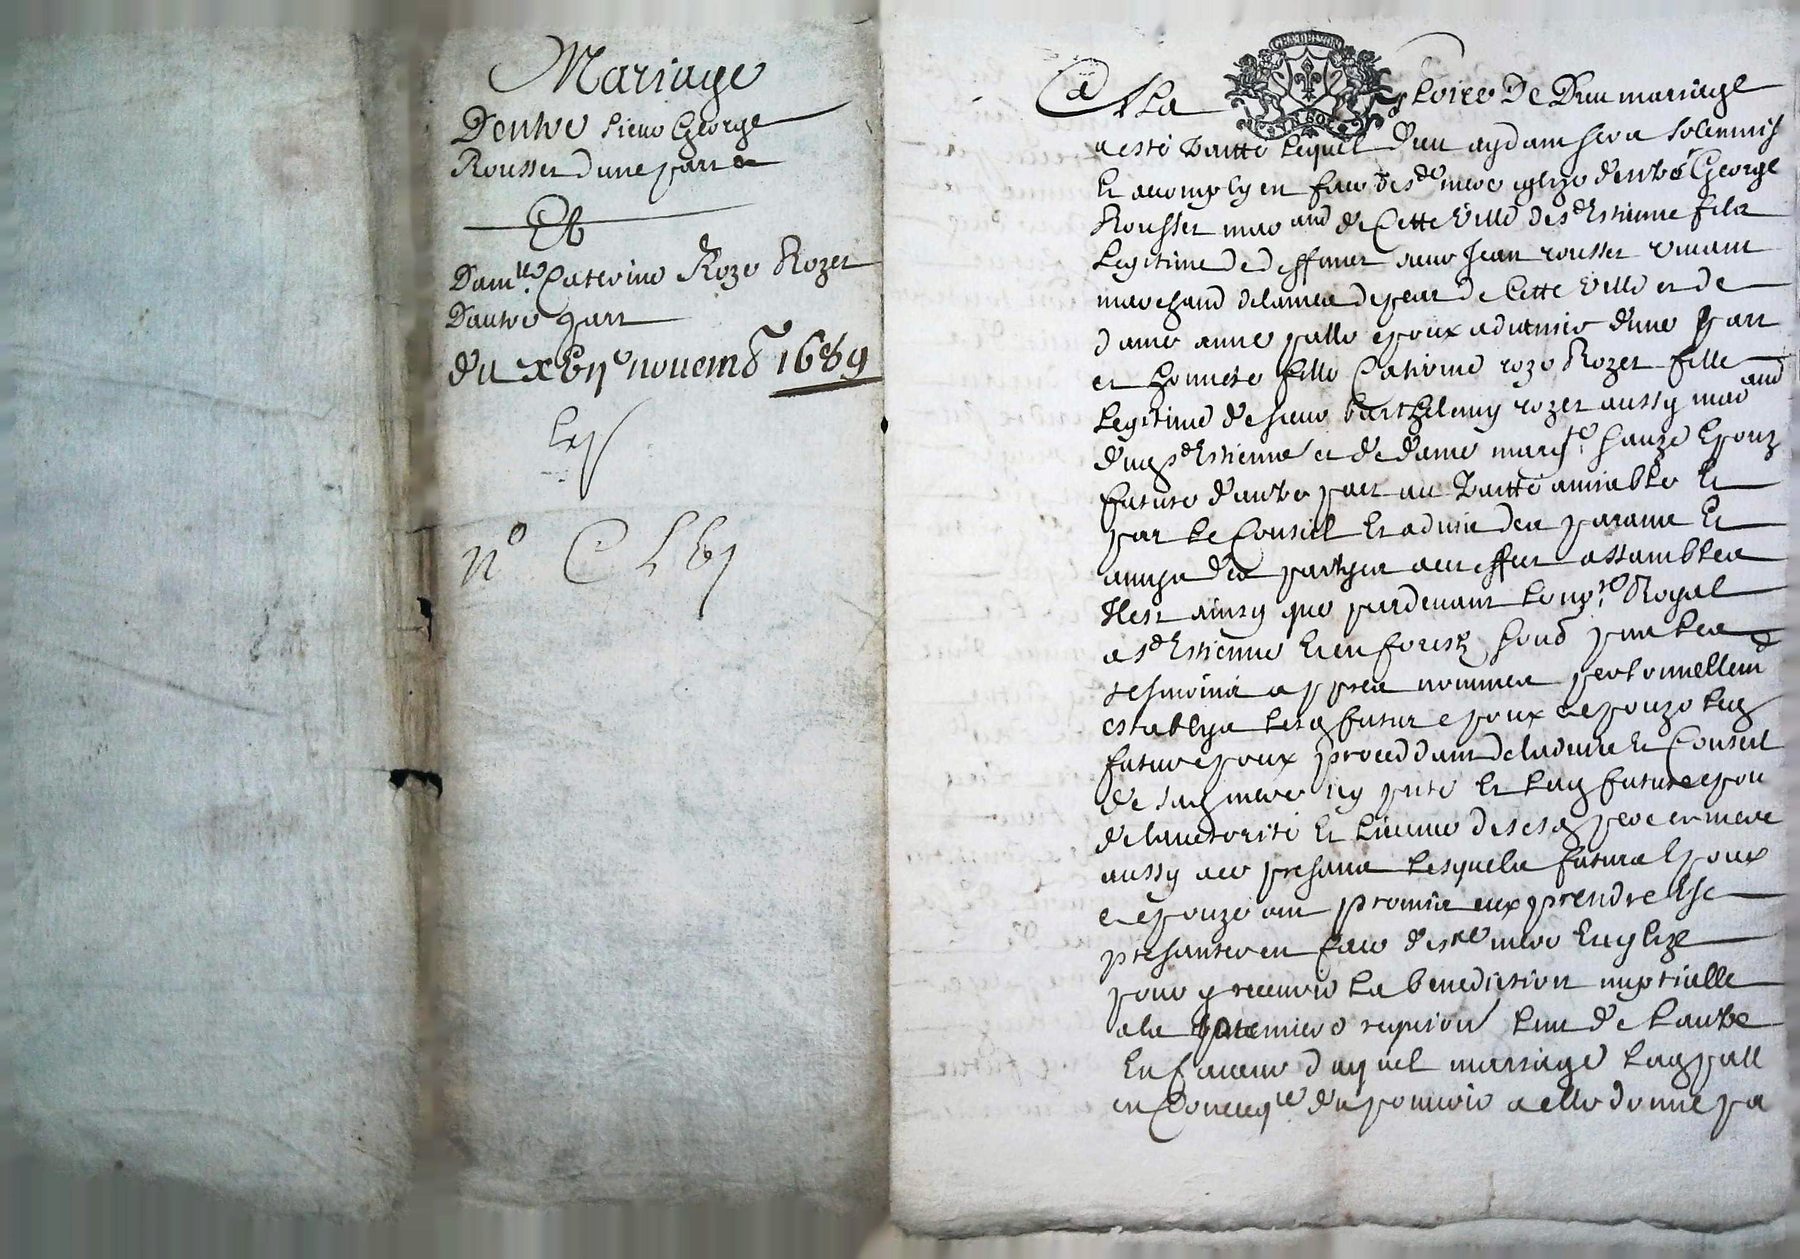 Mariage
D'entre sieur George
Rousset d'une part
Et
Dam.lle Caterine Roze Rozet
D'autre part
du xbij.e novemb 1689
n.o C Lbj
GEN DE LYON
A La gloire De Dieu mariage
a esté traitté lequel Dieu aydant sera solemnisé
Et accomply en face de s.te mere eglize d'entre George
Rousset marchand de Cette Ville de s.t Estienne fils
Legitime de deffunct sieur Jean rousset vivant
marchand de Cette Ville et de
dame anne palle epoux advenir d'une part
et honneste fille Catirine roze Rozet fille
Legitime de sieur barthelemy rozet aussy march.and
dud s.t Estienne et de dame marg.te Epouze
future d'autre part au Traitté amiable Et
par le Conseil Et advis des parans Et
amys des partyes a cet effect assamblea
Il est ainsy que pardevant le no.re Royal
a s.t Estienne En forestz soub.é p.nt les
tesmoins appres nommes personnellem.t
establys lesd futur epoux et epouze led
futur epoux proceddant de ladvis Et Conseil
de sad mere icy p.nte Et lad future epouze
de lauctorité Et licence de sesd pere et mere
aussy icy presans lesquels futurs Epoux
et epouze ont promis eux prendre Et se
presanter en face de s.te mere Englize
pour y recevoir La benediction nuptialle
a la premiere requision lun de Lautre
En faveur duquel mariage Lad pall
en Conceq.ce du pouvoir a elle donné pa